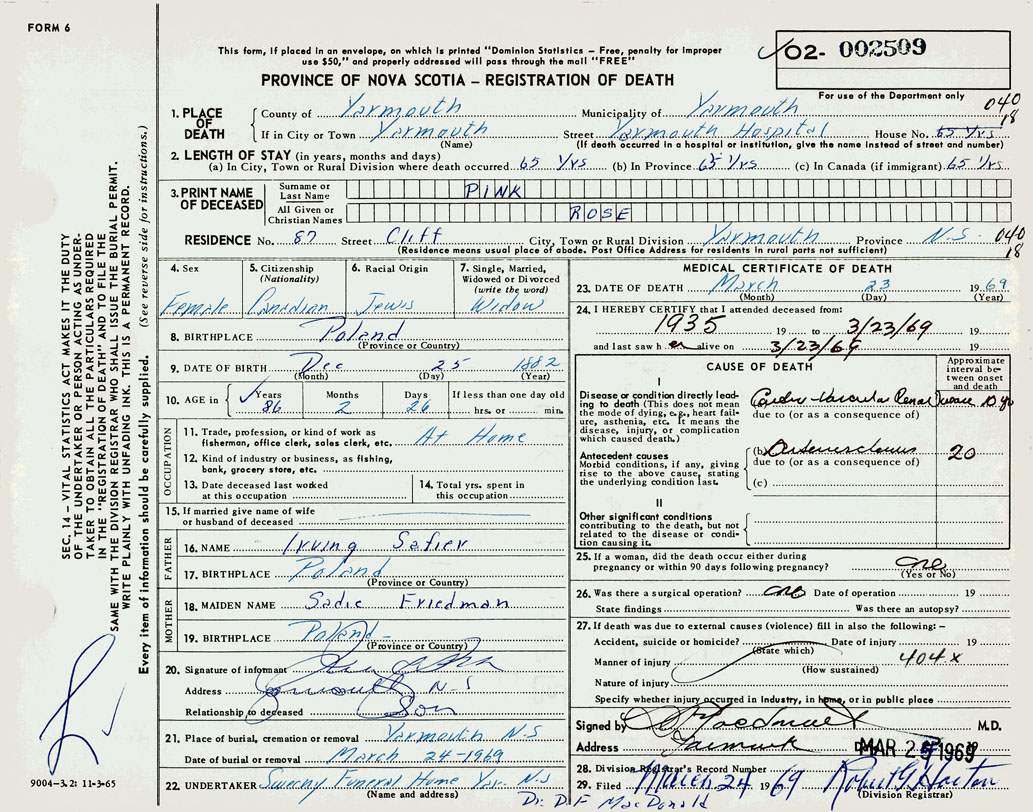 FORM 6
This form, if placed in an envelope, on which is printed "Dominion Statistics – Free, penalty for improper
use $50," and properly addressed will pass through the mail "FREE"
PROVINCE OF NOVA SCOTIA – REGISTRATION OF DEATH
02- 002509
For use of the Department only
1. PLACE OF DEATH County of Yarmouth Municipality of Yarmouth 040
18
If in City or Town Yarmouth Street Yarmouth Hospital House No. 65 Yrs
(Name) (If death occurred in a hospital or institution, give the name instead of street and number)
2. LENGTH OF STAY (in years, months and days)
(a) In City, Town or Rural Division where death occurred 65 Yrs (b) In Province 65 Yrs (c) In Canada (if immigrant) 65 Yrs
3. PRINT NAME OF DECEASED
Surname or Last Name PINK
All Given or Christian Names ROSE
RESIDENCE No. 87 Street Cliff City, Town or Rural Division Yarmouth Province N.S. 040
18
(Residence means usual place of abode. Post Office Address for residents in rural parts not sufficient)
4. Sex
Female
5. Citizenship
(Nationality)
Canadian
6. Racial Origin
Jewis
7. Single, Married,
Widowed or Divorced
(write the word)
Widow
8. BIRTHPLACE Poland
(Province or Country)
9. DATE OF BIRTH Dec 25 1882
(Month) (Day) (Year)
10. AGE in Years Months Days If less than one day old
86 2 26 hrs. or min.
OCCUPATION
11. Trade, profession, or kind of work as
fisherman, office clerk, sales clerk, etc. At Home
12. Kind of industry or business, as fishing,
bank, grocery store, etc.
13. Date deceased last worked
at this occupation
14. Total yrs. spent in
this occupation
15. If married give name of wife
or husband of deceased
FATHER
16. NAME Irving Safier
17. BIRTHPLACE Poland
(Province or Country)
MOTHER
18. MAIDEN NAME Sadie Friedman
19. BIRTHPLACE Poland
(Province or Country)
20. Signature of informant
Address Yarmouth N-S
Relationship to deceased Son
21. Place of burial, cremation or removal Yarmouth N.S
Date of burial or removal March 24-1969
22. UNDERTAKER Sweeny Funeral Home Yar. N.S
(Name and address)
MEDICAL CERTIFICATE OF DEATH
23. DATE OF DEATH March 23 1969
(Month) (Day) (Year)
24. I HEREBY CERTIFY that I attended deceased from:
1935 19 to 3/23/69 19
and last saw h er alive on 3/23/69 19
CAUSE OF DEATH
Approximate
interval be-
tween onset
and death
I
Disease or condition directly lead-
ing to death (This does not mean
the mode of dying, e.g., heart fail-
ure, asthenia, etc. It means the
disease, injury, or complication
which caused death.)
Cardio-Vascular Renal Disease 10 yrs
due to (or as a consequence of)
Antecedent causes
Morbid conditions, if any, giving
rise to the above cause, stating
the underlying condition last.
(b) 20
due to (or as a consequence of)
(c)
II
Other significant conditions
contributing to the death, but not
related to the disease or condi-
tion causing it.
25. If a woman, did the death occur either during
pregnancy or within 90 days following pregnancy? no
(Yes or No)
26. Was there a surgical operation? no Date of operation 19
State findings Was there an autopsy?
27. If death was due to external causes (violence) fill in also the following: –
Accident, suicide or homicide? Date of injury 19
(State which)
Manner of injury 404 x
(How sustained)
Nature of injury
Specify whether injury occurred in Industry, in home, or in public place
Signed by M.D.
Address Yarmouth MAR 25 1969 19
28. Division Registrar's Record Number
29. Filed March 24 1969 Robert G. Horton
(Division Registrar)
Dr. D F MacDonald
SEC. 14 – VITAL STATISTICS ACT MAKES IT THE DUTY
OF THE UNDERTAKER OR PERSON ACTING AS UNDER-
TAKER TO OBTAIN ALL THE PARTICULARS REQUIRED
IN THE "REGISTRATION OF DEATH" AND TO FILE THE
SAME WITH THE DIVISION REGISTRAR WHO SHALL ISSUE THE BURIAL PERMIT.
WRITE PLAINLY WITH UNFADING INK. THIS IS A PERMANENT RECORD.
Every item of information should be carefully supplied. (See reverse side for instructions.)
9004-3.2: 11-3-65